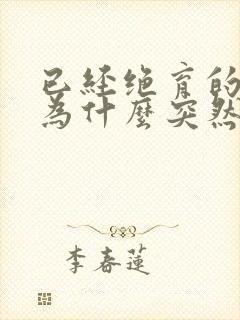 已经绝育的
為什麼突然
李春蓮